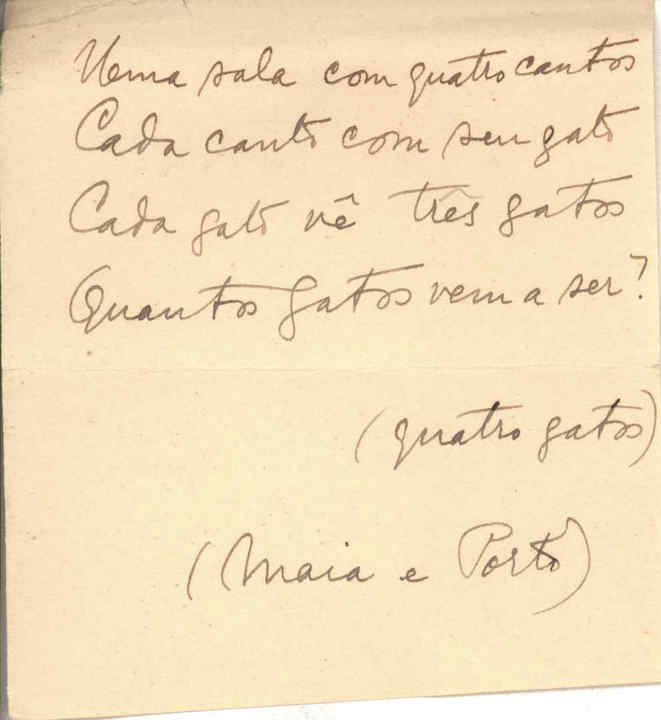 Numa sala com quatro cantos
Cada canto com seu gato
Cada gato vê três gatos
Quantos gatos vem a ser?
(quatro gatos)
(Maia e Porto)